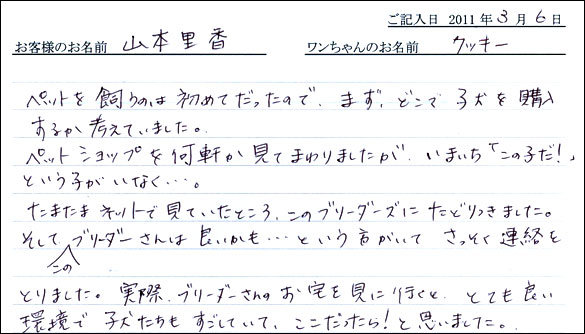 ご記入日 2011年3月6日
お客様のお名前 山本里香 ワンちゃんのお名前 クッキー
ペットを飼うのは初めてだったので、まず、どこで子犬を購入
するか考えていました。
ペットショップを何軒か見てまわりましたが、いまいち「この子だ!」
という子がいなく…。
たまたまネットで見ていたところ、このブリーダーズにたどりつきました。
そして、このブリーダーさんは良いかも…という方がいて さっそく連絡を
とりました。実際、ブリーダーさんのお宅を見に行くと、とても良い
環境で子犬たちもすごしていて、ここだったら!と思いました。